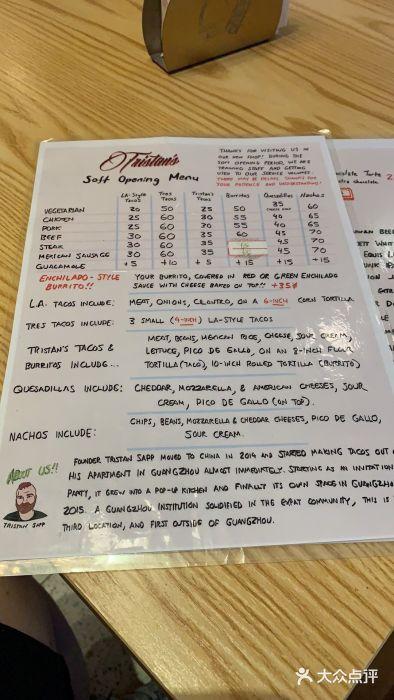 Tristan's
Soft Opening Menu
THANKS FOR VISITING US IN
OUR NEW SHOP! DURING THE
SOFT OPENING PERIOD, WE ARE
TRAINING STAFF AND GETTING
USED TO OUR SERVICE VOLUMES.
THERE MAY BE DELAYS. THANKS FOR
YOUR PATIENCE AND UNDERSTANDING!
LA-Style Tacos Tres Tacos Tristan's Tacos Burritos Quesadillas Nachos
VEGETARIAN 20 50 25 50 35 60
CHICKEN 25 60 30 55 40 65
PORK 25 60 30 55 40 65
BEEF 30 60 35 60 45 70
STEAK 30 60 35 45 70
MEXICAN SAUSAGE 30 60 35 45 70
GUACAMOLE +5 +10 +5 +15 +15 +15
ENCHILADO-STYLE
BURRITO!!
YOUR BURRITO, COVERED IN RED OR GREEN ENCHILADO
SAUCE WITH CHEESE BAKED ON TOP!! +35¥
L.A. TACOS INCLUDE: MEAT, ONIONS, CILANTRO, ON A 6-INCH CORN TORTILLA
TRES TACOS INCLUDE: 3 SMALL (4-INCH) LA-STYLE TACOS
TRISTAN'S TACOS &
BURRITOS INCLUDE...
MEAT, BEANS, MEXICAN RICE, CHEESE, SOUR CREAM,
LETTUCE, PICO DE GALLO, ON AN 8-INCH FLOUR
TORTILLA (TACO), 10-INCH ROLLED TORTILLA (BURRITO)
QUESADILLAS INCLUDE: CHEDDAR, MOZZARELLA, & AMERICAN CHEESES, SOUR
CREAM, PICO DE GALLO (ON TOP).
NACHOS INCLUDE:
CHIPS, BEANS, MOZZARELLA & CHEDDAR CHEESES, PICO DE GALLO,
SOUR CREAM.
ABOUT US!!
TRISTAN SAPP
FOUNDER TRISTAN SAPP MOVED TO CHINA IN 2014 AND STARTED MAKING TACOS OUT
HIS APARTMENT IN GUANGZHOU ALMOST IMMEDIATELY. STARTING AS AN INVITATION
PARTY, IT GREW INTO A POP-UP KITCHEN AND FINALLY ITS OWN SPACE IN GUANGZHOU
2015. A GUANGZHOU INSTITUTION SOLIDIFIED IN THE EXPAT COMMUNITY, THIS IS
THIRD LOCATION, AND FIRST OUTSIDE OF GUANGZHOU.
大众点评